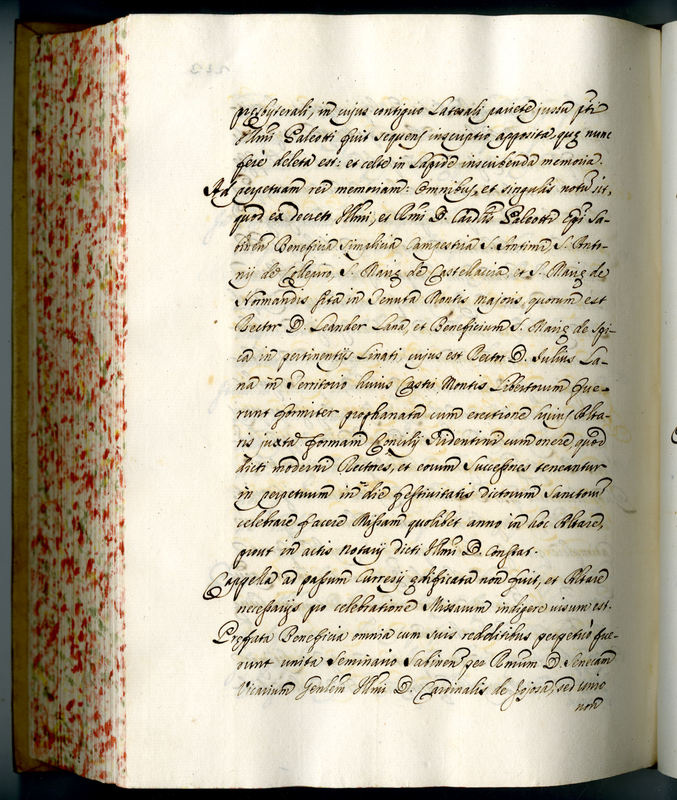 presbyterali, in cujus contiguo Laterali pariete jussu pti
Illmi Paleotti fuit sequens inscriptio apposita, quę nunc
fere deleta est: et est in Lapide inscribenda memoria.
Ad perpetuam rei memoriam: Omnibus, et singulis notū sit,
quod ex decreto Illmi, es Rmi D. Cardlis Paleotti Epi Sa-
binen Beneficia Simplicia Campestria S. Antimi, S. Anto-
nij de, S. Marię de Castellaccia, et S. Marię de
Normandis sita in Tenuta Montis majoris, quorum est
Rector D. Leander Lana, et Beneficium S. Marię de Spi-
ca in pertinentijs Linati cujus est Rector D. Julius La-
na in Territorio huius Castri Montis Libertorum fue-
runt formiter prophanata cum erectione huius Alta-
ris juxta formam Concilij Tridentini cum onere quod
dicti moderni Rectores, et eorum Successores teneantur
in perpetuum in die festivitatis dictorum Sanctorum
celebrare facere Missam quolibet anno in hoc Altare,
prout in actis Notarij dicti Illmi D. Constar.
Cappella ad passum Curresij ędificata non fuit, et Altare
necessarijs pro celebratione Missarum indigere visum est.
Pręfata Beneficia omnia cum suis redditibus perpetuo fue-
runt unita Seminario Sabinen per Rmum D. Senecam
Vicarium Genlem Illmi D. Cardinalis de Jojosa, sed unio
non